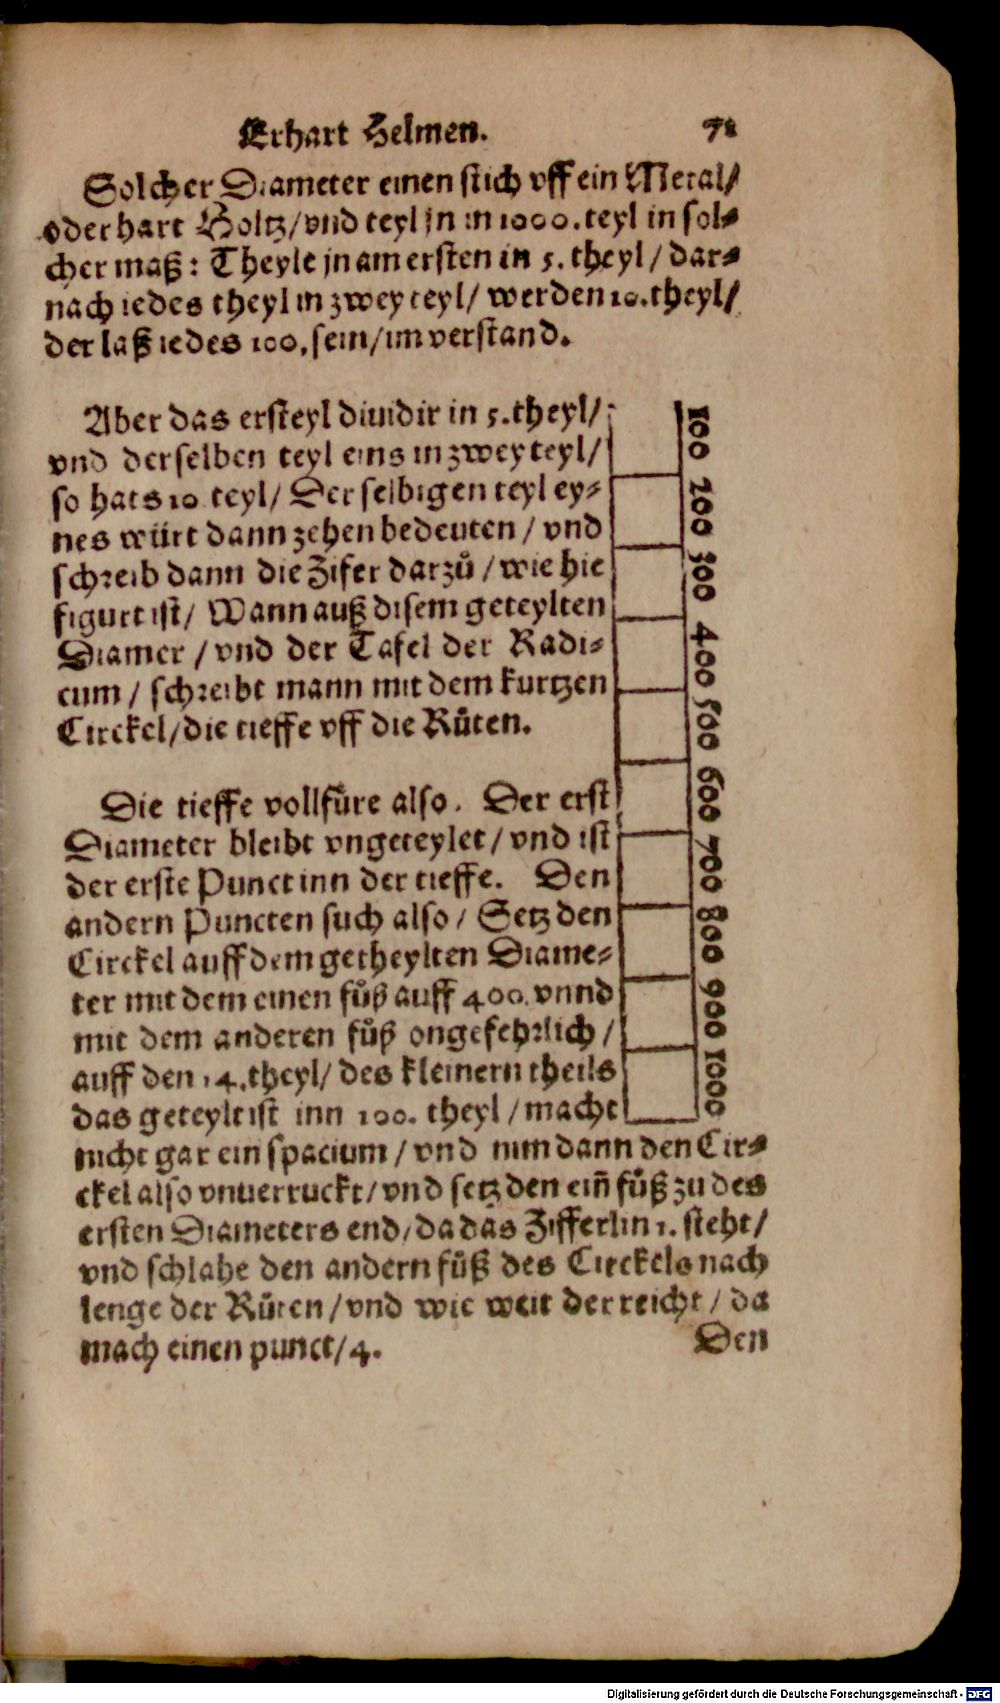 Erhart Helmen. 71
Solcher Diameter einen stich vff ein Metal/
oder hart Holtz/vnd teyl jn in 1000. teyl in sol-
cher maß: Theyle jn am ersten in 5. theyl/ dar-
nach iedes theyl in zwey teyl/ werden 10. theyl/
der laß iedes 100. sein/im verstand.
Aber das ersteyl diuidir in 5. theyl/
vnd derselben teyl eins in zwey teyl/
so hats 10 teyl/ Der selbigen teyl ey-
nes würt dann zehen bedeuten / vnd
schreib dann die Zifer darzů / wie hie
figurt ist/ Wann auß disem geteylten
Diamer / vnd der Tafel der Radi-
cum / schreibt mann mit dem kurtzen
Circkel/die tieffe vff die Růten.
Die tieffe vollfůre also. Der erst
Diameter bleibt vngeteylet/ vnd ist
der erste Punct inn der tieffe. Den
andern Puncten such also/ Setz den
Circkel auff dem getheylten Diame-
ter mit dem einen fůß auff 400. vnnd
mit dem anderen fůß ongefehrlich /
auff den 14. theyl/ des kleinern theils
das geteylt ist inn 100. theyl / macht
nicht gar ein spacium / vnd nim dann den Cir-
ckel also vnuerruckt/ vnd setz den eiñ fůß zu des
ersten Diameters end/ da das Zifferlin 1. steht/
vnd schlahe den andern fůß des Circkels nach
lenge der Růten / vnd wie weit der reicht / da
mach einen punct/4.
Den
100
200
300
400
500
600
700
800
900
1000
Digitalisierung gefördert durch die Deutsche Forschungsgemeinschaft - DFG